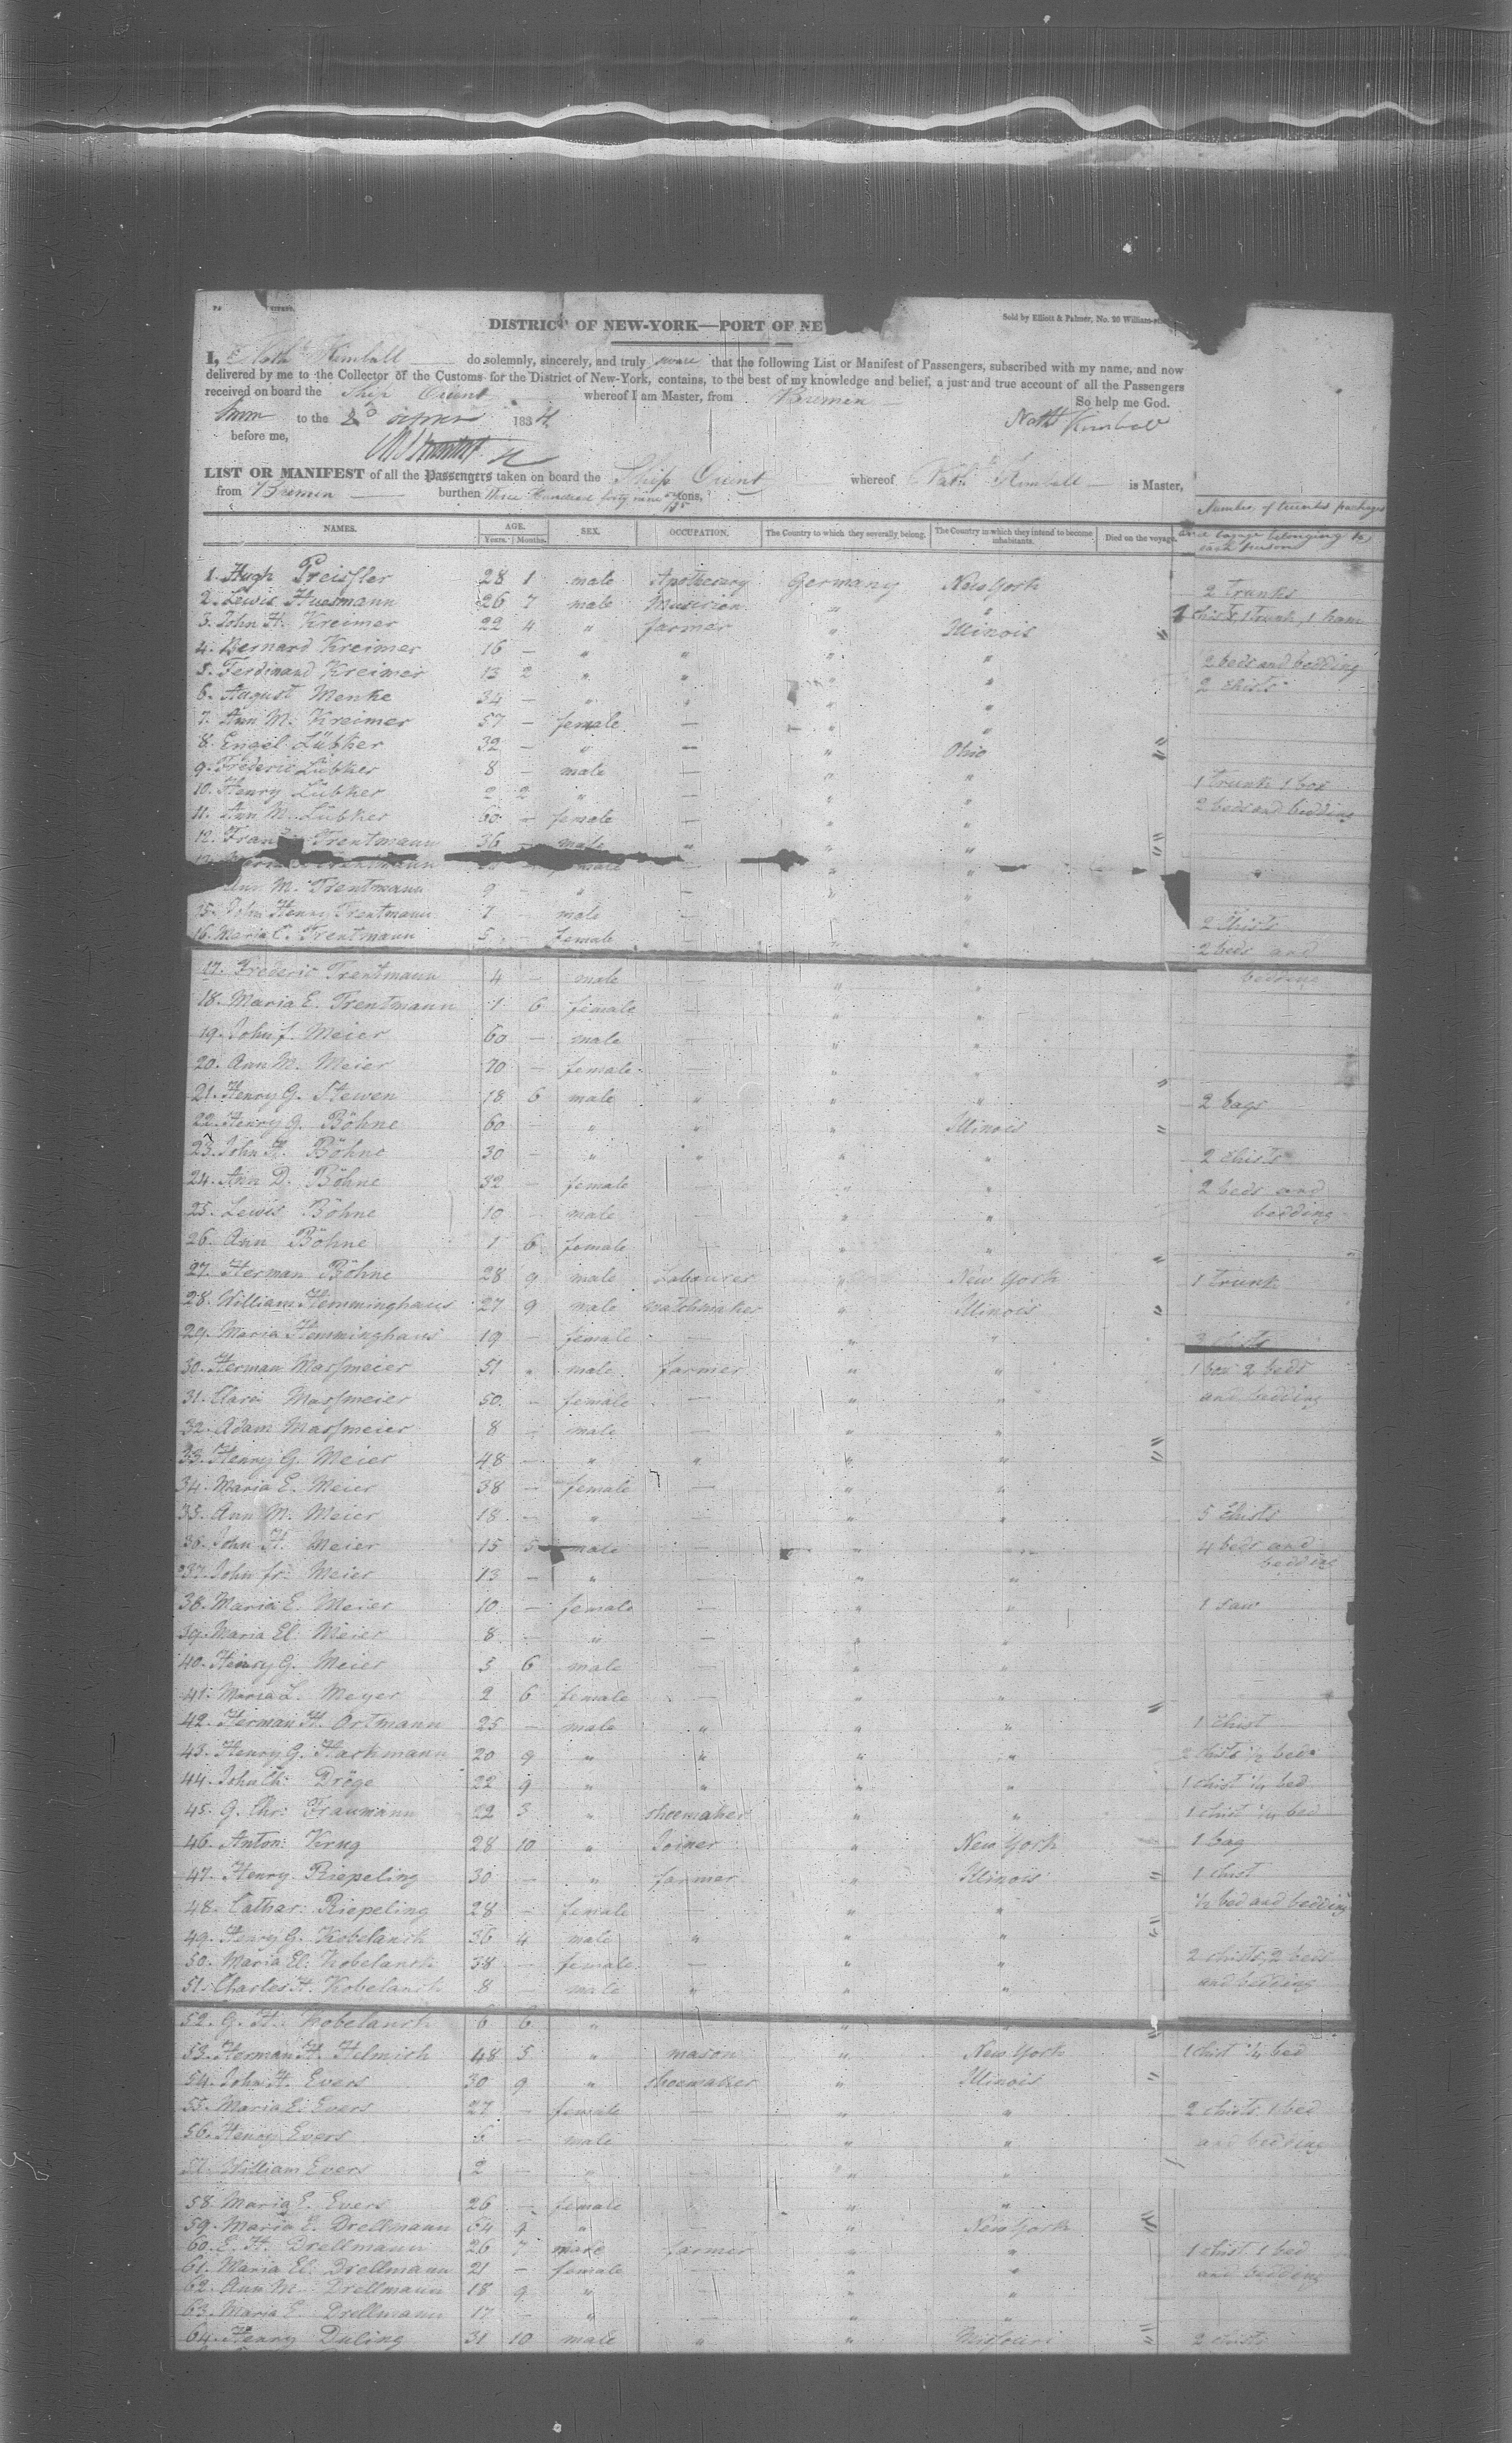 DISTRICT OF NEW-YORK—PORT OF NE
Sold by Elliott & Palmer, No. 20 William-st
I, Nath. Kimball do solemnly, sincerely, and truly swear that the following List or Manifest of Passengers, subscribed with my name, and now
delivered by me to the Collector of the Customs for the District of New-York, contains, to the best of my knowledge and belief, a just and true account of all the Passengers
received on board the Ship Orient whereof I am Master, from Bremen
So help me God.
to the 183
Nath Kimball
before me,
LIST OR MANIFEST of all the Passengers taken on board the Ship Orient whereof Nath Kimball is Master,
from Bremen burthen Three Hundred forty nine tons,
Number of trunks packages
and bagage belonging to
each person
NAMES. AGE. Years. Months. SEX. OCCUPATION. The Country to which they severally belong. The Country in which they intend to become inhabitants. Died on the voyage.
1. Hugh Preissler 28 1 male Apothecary Germany New York 2 Trunks
2. Lewis Huesmann 26 7 male Musician " " 1 trunk, 1
3. John H. Kreimer 22 4 " farmer " Illinois "
4. Bernard Kreimer 16 — " " " " 2 beds and bedding
5. Ferdinand Kreimer 13 2 " " " " 2 chists
6. August Menke 34 — " " " "
7. Ann M. Kreimer 57 — female — " "
8. Engel Lübker 32 — " — " Ohio "
9. Frederic Lübker 8 — male — " " 1 trunk 1 box
10. Henry Lübker 2 2 " — " " 2 beds and bedding
11. Ann M. Lübker 60 — female — " "
12. Trentmann 36 — male " " "
Trentmann female — "
Ann M. Trentmann 9 — " — " "
15. John Henry Trentmann 7 — male — 2 Chists
16. Maria C. Trentmann 5 — female — " " 2 beds and
17. Frederic Trentmann 4 — male — " " bedding
18. Maria E. Trentmann 1 6 female — " "
19. John f. Meier 60 — male — " "
20. Ann M. Meier 70 — female — " "
21. Henry G. Stewen 18 6 male " " " 2 bags
22. Henry G. Böhne 60 — " " " Illinois "
23. John H. Böhne 30 — " " " " 2 chists
24. Ann D. Böhne 32 — female — " " 2 beds and
25. Lewis Böhne 10 — male — " " bedding
26. Ann Böhne 1 6 female — " "
27. Herman Böhne 28 9 male Labourer " New York 1 trunk
28. William Hemminghaus 27 9 male watchmaker " Illinois "
29. Maria Hemminghaus 19 — female — " " 3 chists
30. Herman Massmeier 51 " male farmer " " 1 box 2 beds
31. Clara Massmeier 50 — female — " " and bedding
32. Adam Massmeier 8 — male — " "
33. Henry G. Meier 48 — " " " "
34. Maria E. Meier 38 — female — " "
35. Ann M. Meier 18 — " — " " 5 Chists
36. John H. Meier 15 5 male — " " 4 beds and
37. John fr: Meier 13 — " — " " bedding
38. Maria E. Meier 10 — female — " " 1 saw
39. Maria El: Meier 8 — " — " "
40. Henry G. Meier 5 6 male — " "
41. Maria L. Meyer 2 6 female — " "
42. Herman H. Ortmann 25 — male " " " 1 Chist
43. Henry G. Harkmann 20 9 " " " " 2 chists 1/2 beds
44. John Ch: Dröge 22 9 " " " " 1 chist 1/4 bed
45. G. Chr: Fraumann 22 3 " shoemaker " " 1 chist 1/4 bed
46. Anton: Krug 28 10 " Joiner " New York 1 bag
47. Henry Riepeling 30 — " farmer " Illinois " 1 chist
48. Cathar: Riepeling 28 — female — " " 1/2 bed and bedding
49. Henry G. Kobelansk 36 4 male " " "
50. Maria El: Kobelansk 38 — female — " " 2 chists, 2 beds
51. Charles H. Kobelansk 8 — male " " " and bedding
52. G. H. Kobelansk 6 6 " — " "
53. Herman H. Helmich 48 5 " mason " New York 1 chist 1/4 bed
54. John H. Evers 30 9 " shoemaker " Illinois "
55. Maria E. Evers 27 — female — " " 2 chists 1 bed
56. Henry Evers — male — " " and bedding
57. William Evers 2 — " — " "
58. Maria E. Evers 26 — female " "
59. Maria E. Drellmann 64 " — " New York
60. E. H. Drellmann 26 7 male farmer " " 1 chist 1 bed
61. Maria El: Drellmann 21 — female — " " and bedding
62. Ann M. Drellmann 18 9 " — " "
63. Maria E. Drellmann 17 — " — " "
64. Henry Duling 31 10 male " " Missouri " 2 chists